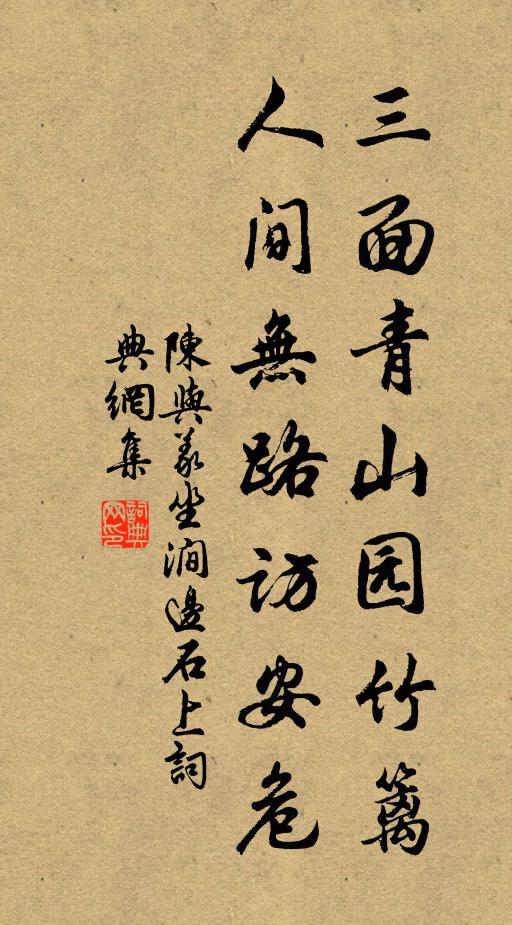 三面青山园竹篱
人間無路訪安危
陳與義坐澗邊石上詞
典網集
詞典
网印